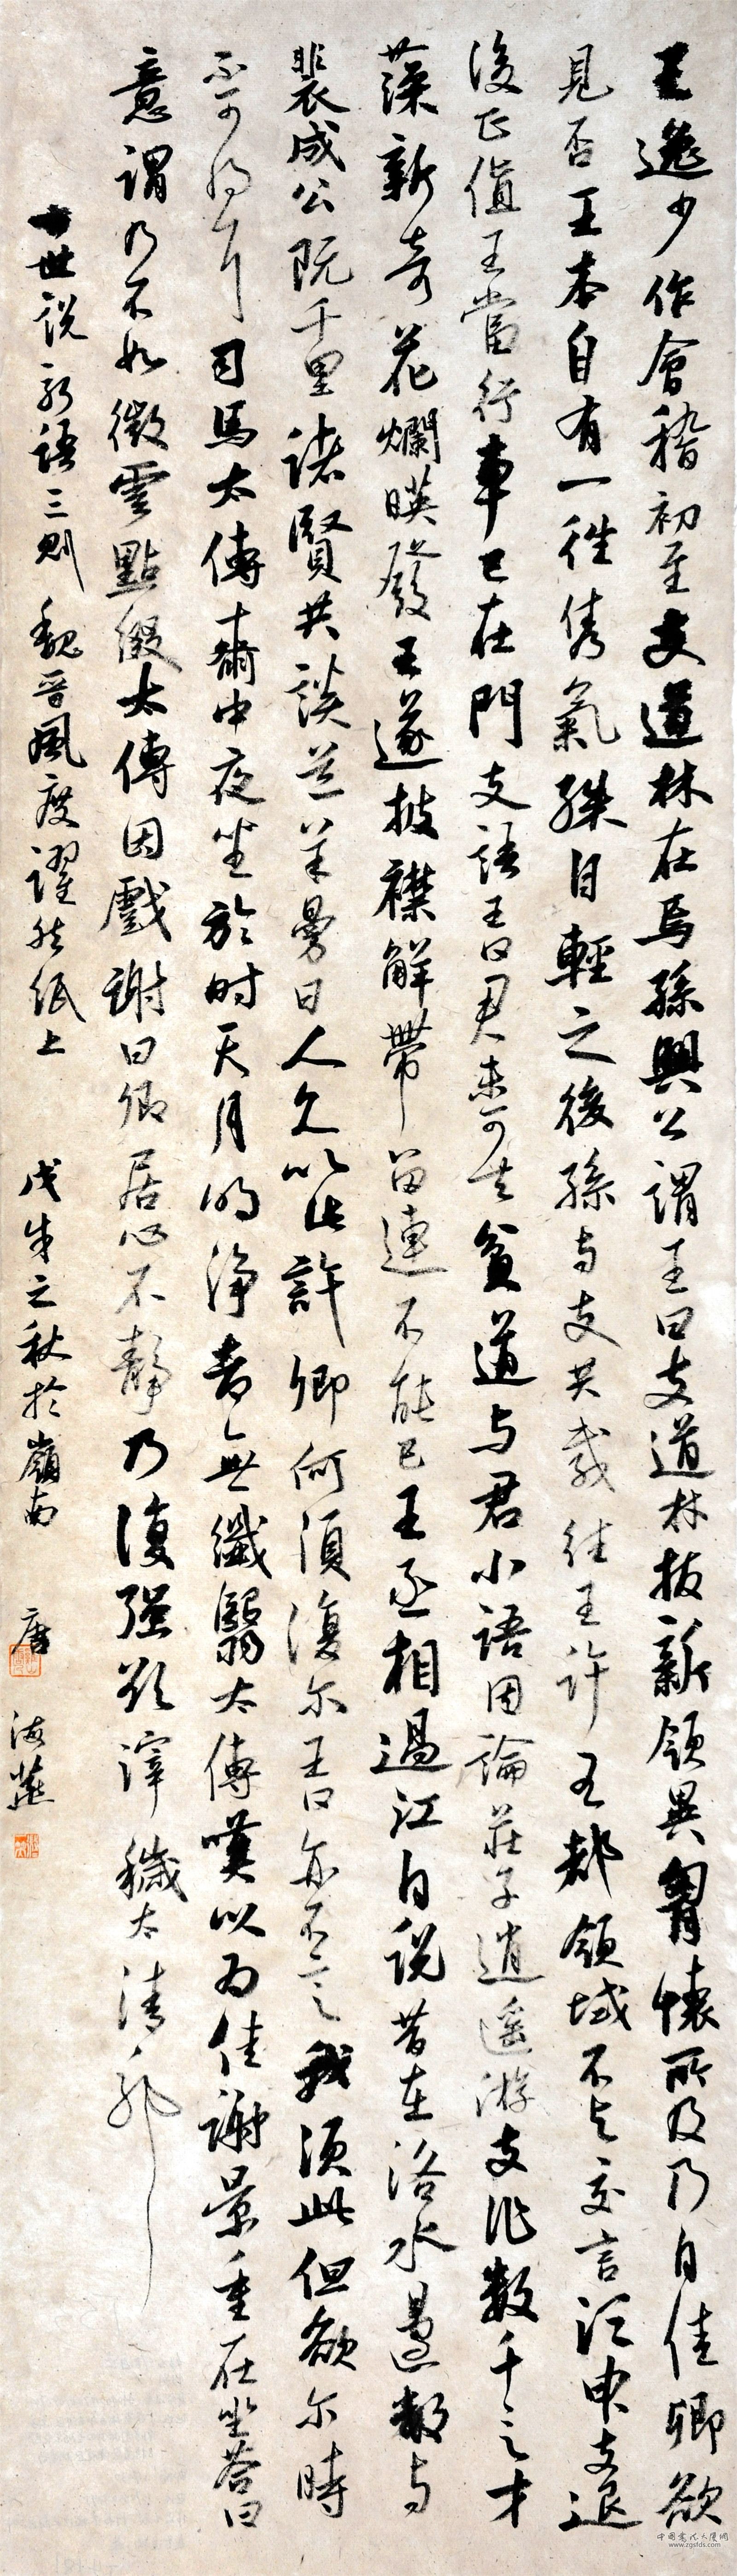 王逸少作會稽初至支道林在焉孫興公謂王曰支道林拔新領異胷懷所及乃自佳卿欲
見否王本自有一往雋氣殊自輕之後孫与支共載往王許王都領域不与交言須臾支退
後正值王當行車已在門支語王曰君未可去貧道与君小語因論莊子逍遥游支作數千言才
藻新奇花爛暎發王遂披襟解帶留連不能已王丞相過江自說昔在洛水邊數与
裴成公阮千里諸賢共談道羊曼曰人久以此許卿何須復尔王曰亦不言我須此但欲尔時
不可得耳司馬太傅齋中夜坐於時天月明淨都無纖翳太傅嘆以為佳謝景重在坐荅曰
意謂乃不如微雲點綴太傅因戲謝曰卿居心不靜乃復强欲滓穢太清邪
世説新語三則 魏晋風度躍然紙上 戊戌之秋於嶺南 唐海燕
中国书法大厦网
www.zgsfds.com